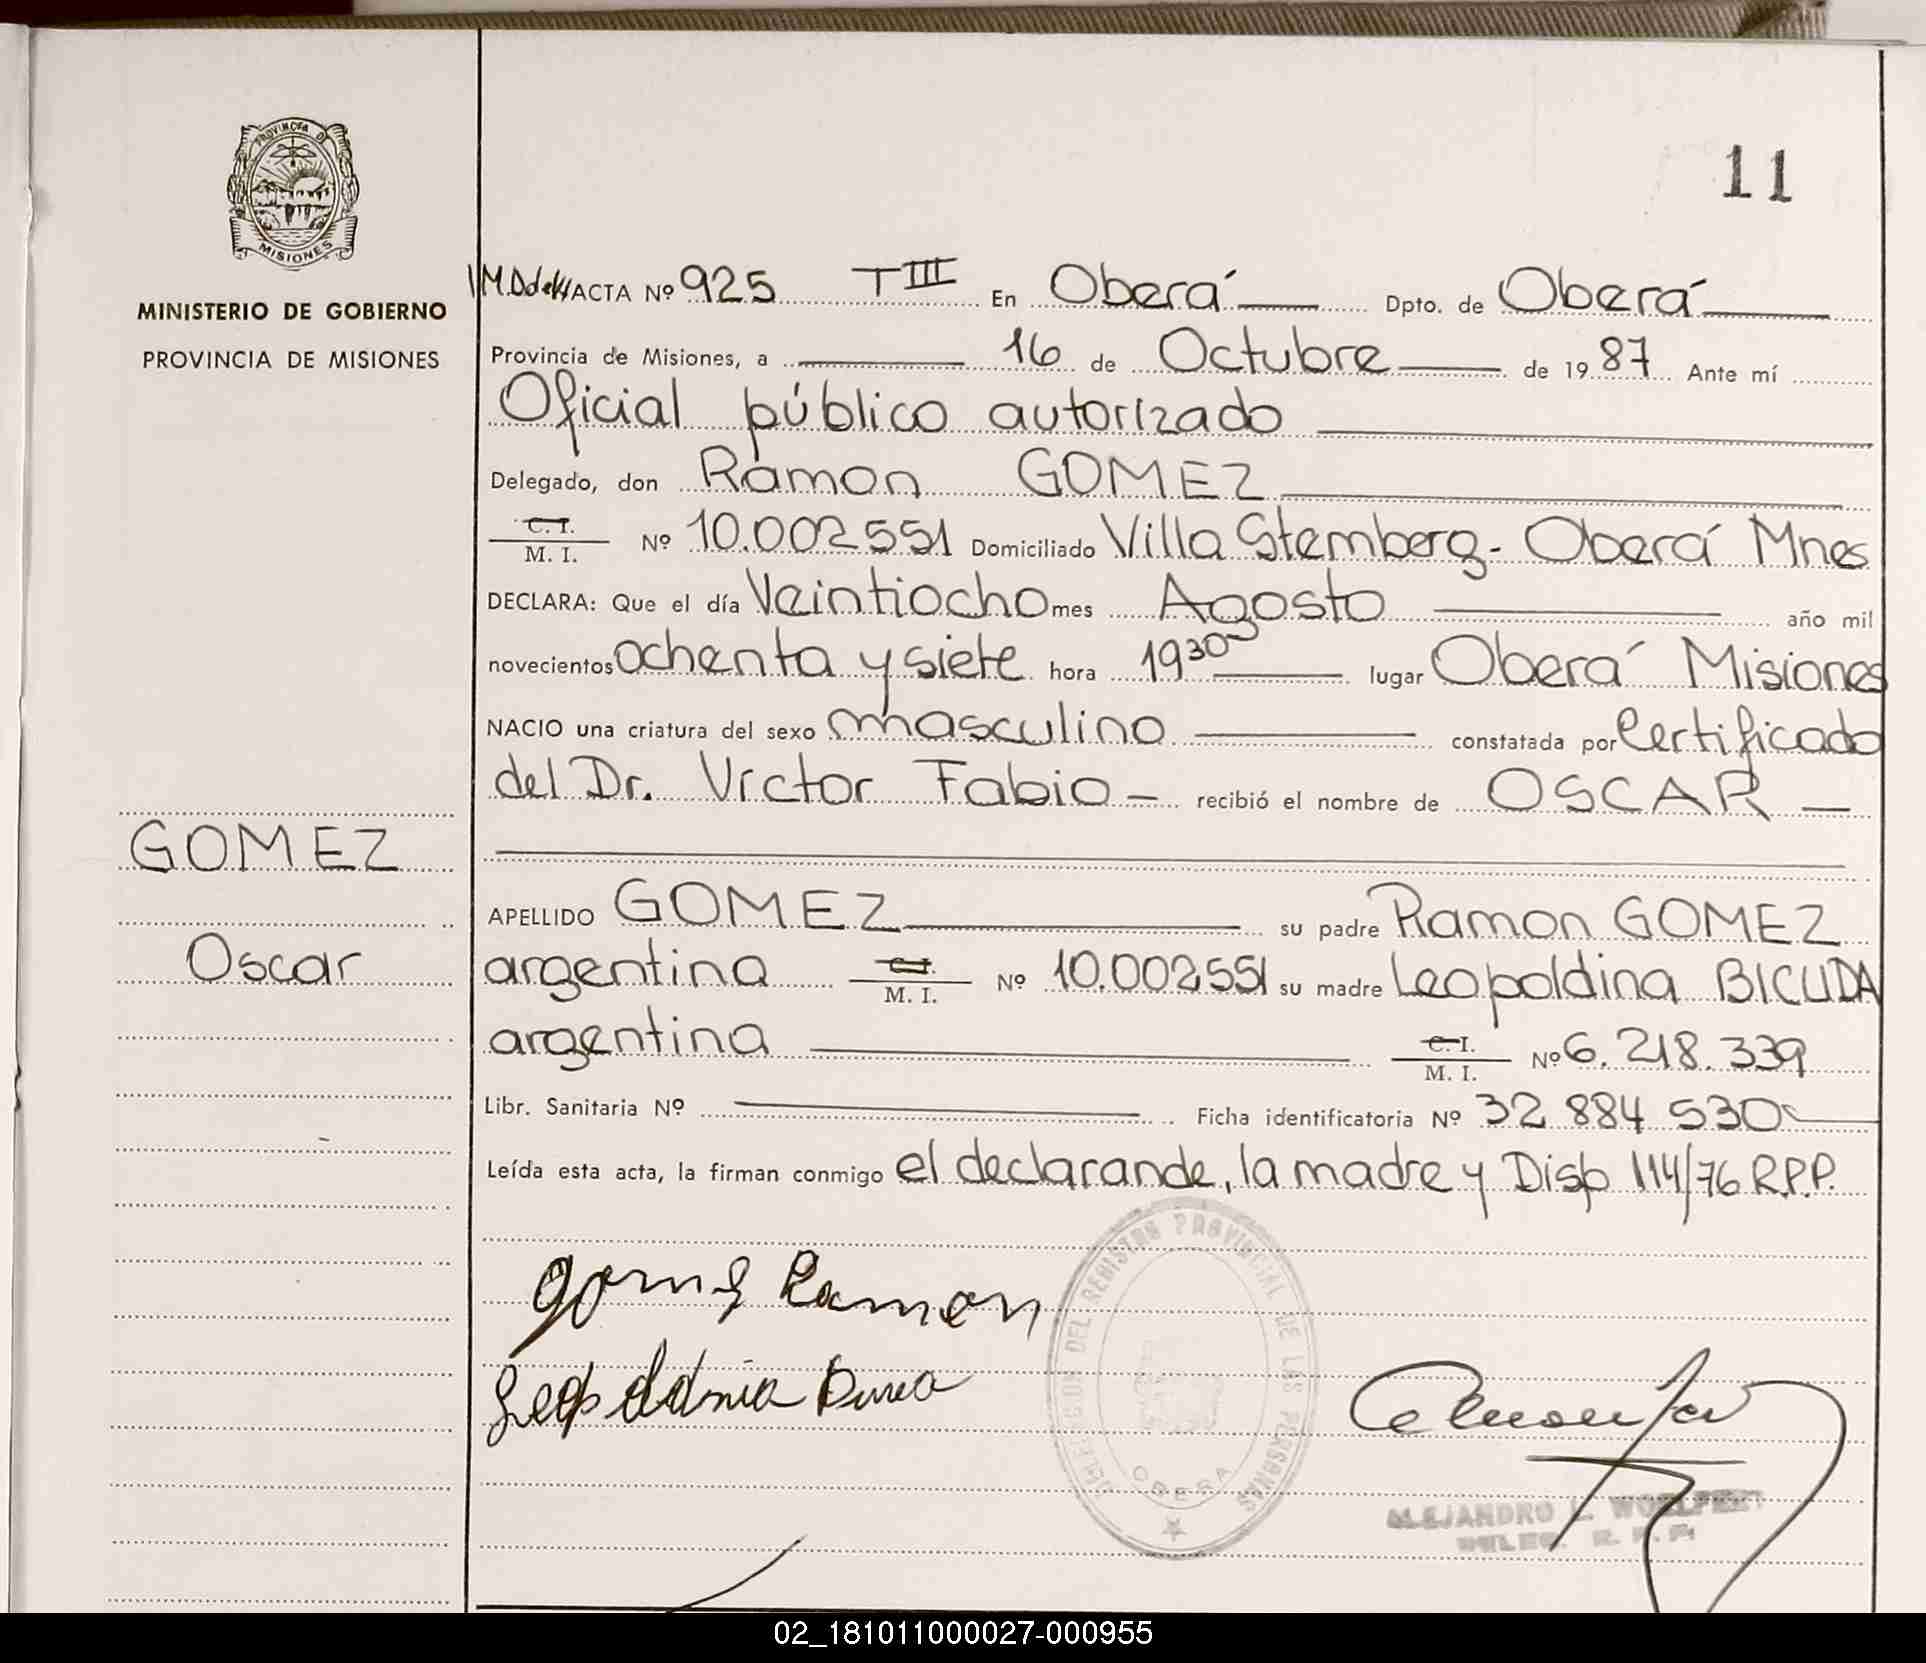 11
PROVINCIA DE
MISIONES
MINISTERIO DE GOBIERNO
PROVINCIA DE MISIONES
ACTA Nº 925 TIII En Oberá Dpto. de Oberá
Provincia de Misiones, a 16 de Octubre de 1987 Ante mí
Oficial público autorizado
Delegado, don Ramon GOMEZ
C. I.
M. I. Nº 10.002551 Domiciliado Villa Stemberg - Oberá Mnes
DECLARA: Que el día Veintiocho mes Agosto año mil
novecientos ochenta y siete hora 1930 lugar Oberá Misiones
NACIO una criatura del sexo masculino constatada por Certificado
del Dr. Victor Fabio - recibió el nombre de OSCAR -
GOMEZ
APELLIDO GOMEZ su padre Ramon GOMEZ
Oscar
argentina C.I. M. I. Nº 10.002551 su madre Leopoldina BICUDA
argentina C. I. M. I. Nº 6.218.339
Libr. Sanitaria Nº Ficha identificatoria Nº 32 884 530
Leída esta acta, la firman conmigo el declarande, la madre y Disp 114/76 R.P.P.
Gomez Ramon
DELEGACION DEL REGISTRO PROVINCIAL DE LAS PERSONAS
OBERA
ALEJANDRO L. WOELFERT
DELEG. R. P. P.
02_181011000027-000955